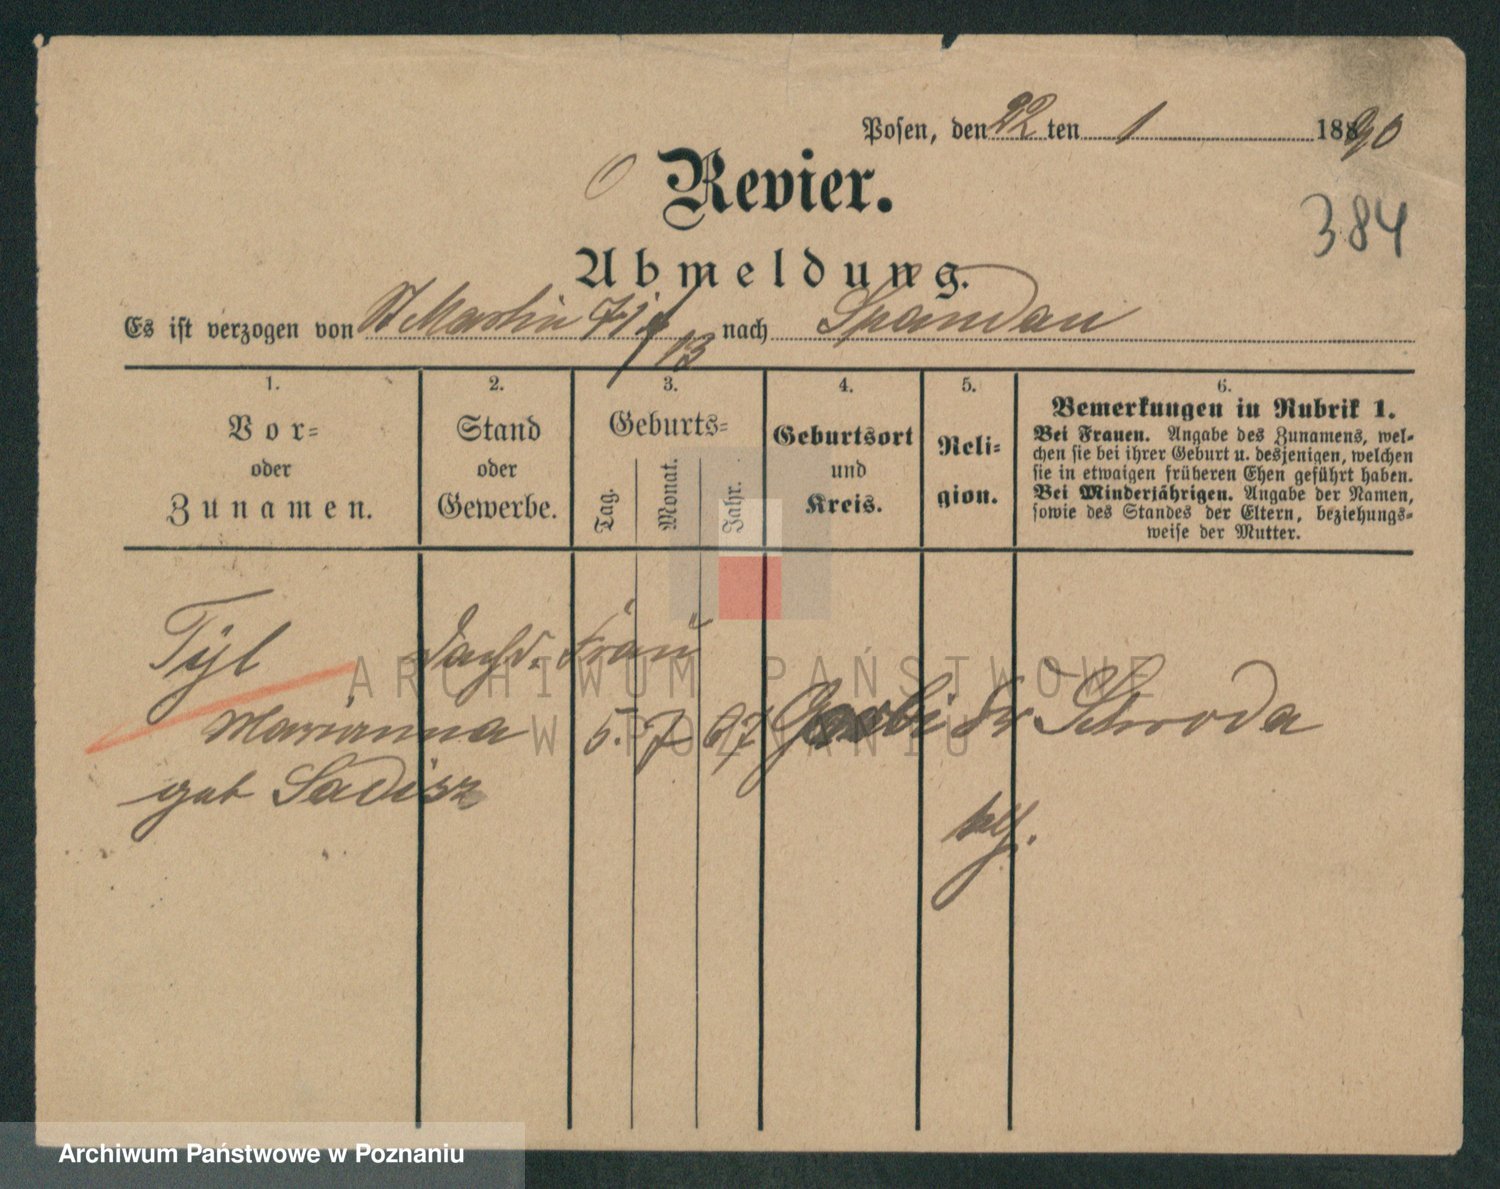 Posen, den 22 ten 1 1890
Revier.
384
Abmeldung.
Es ist verzogen von St Martin 71 nach Spandau
13
1. 2. 3. 4. 5. 6.
Vor= oder Zunamen.
Stand oder Gewerbe.
Geburts=
Tag. Monat. Jahr.
Geburtsort und Kreis.
Reli= gion.
Bemerkungen in Rubrik 1.
Bei Frauen. Angabe des Zunamens, wel-
chen sie bei ihrer Geburt u. desjenigen, welchen
sie in etwaigen früheren Ehen geführt haben.
Bei Minderjährigen. Angabe der Namen,
sowie des Standes der Eltern, beziehungs=
weise der Mutter.
Tyl Frau
Marianna 5. 7 67 Schroda
geb
ARCHIWUM PAŃSTWOWE
W POZNANIU
Archiwum Państwowe w Poznaniu